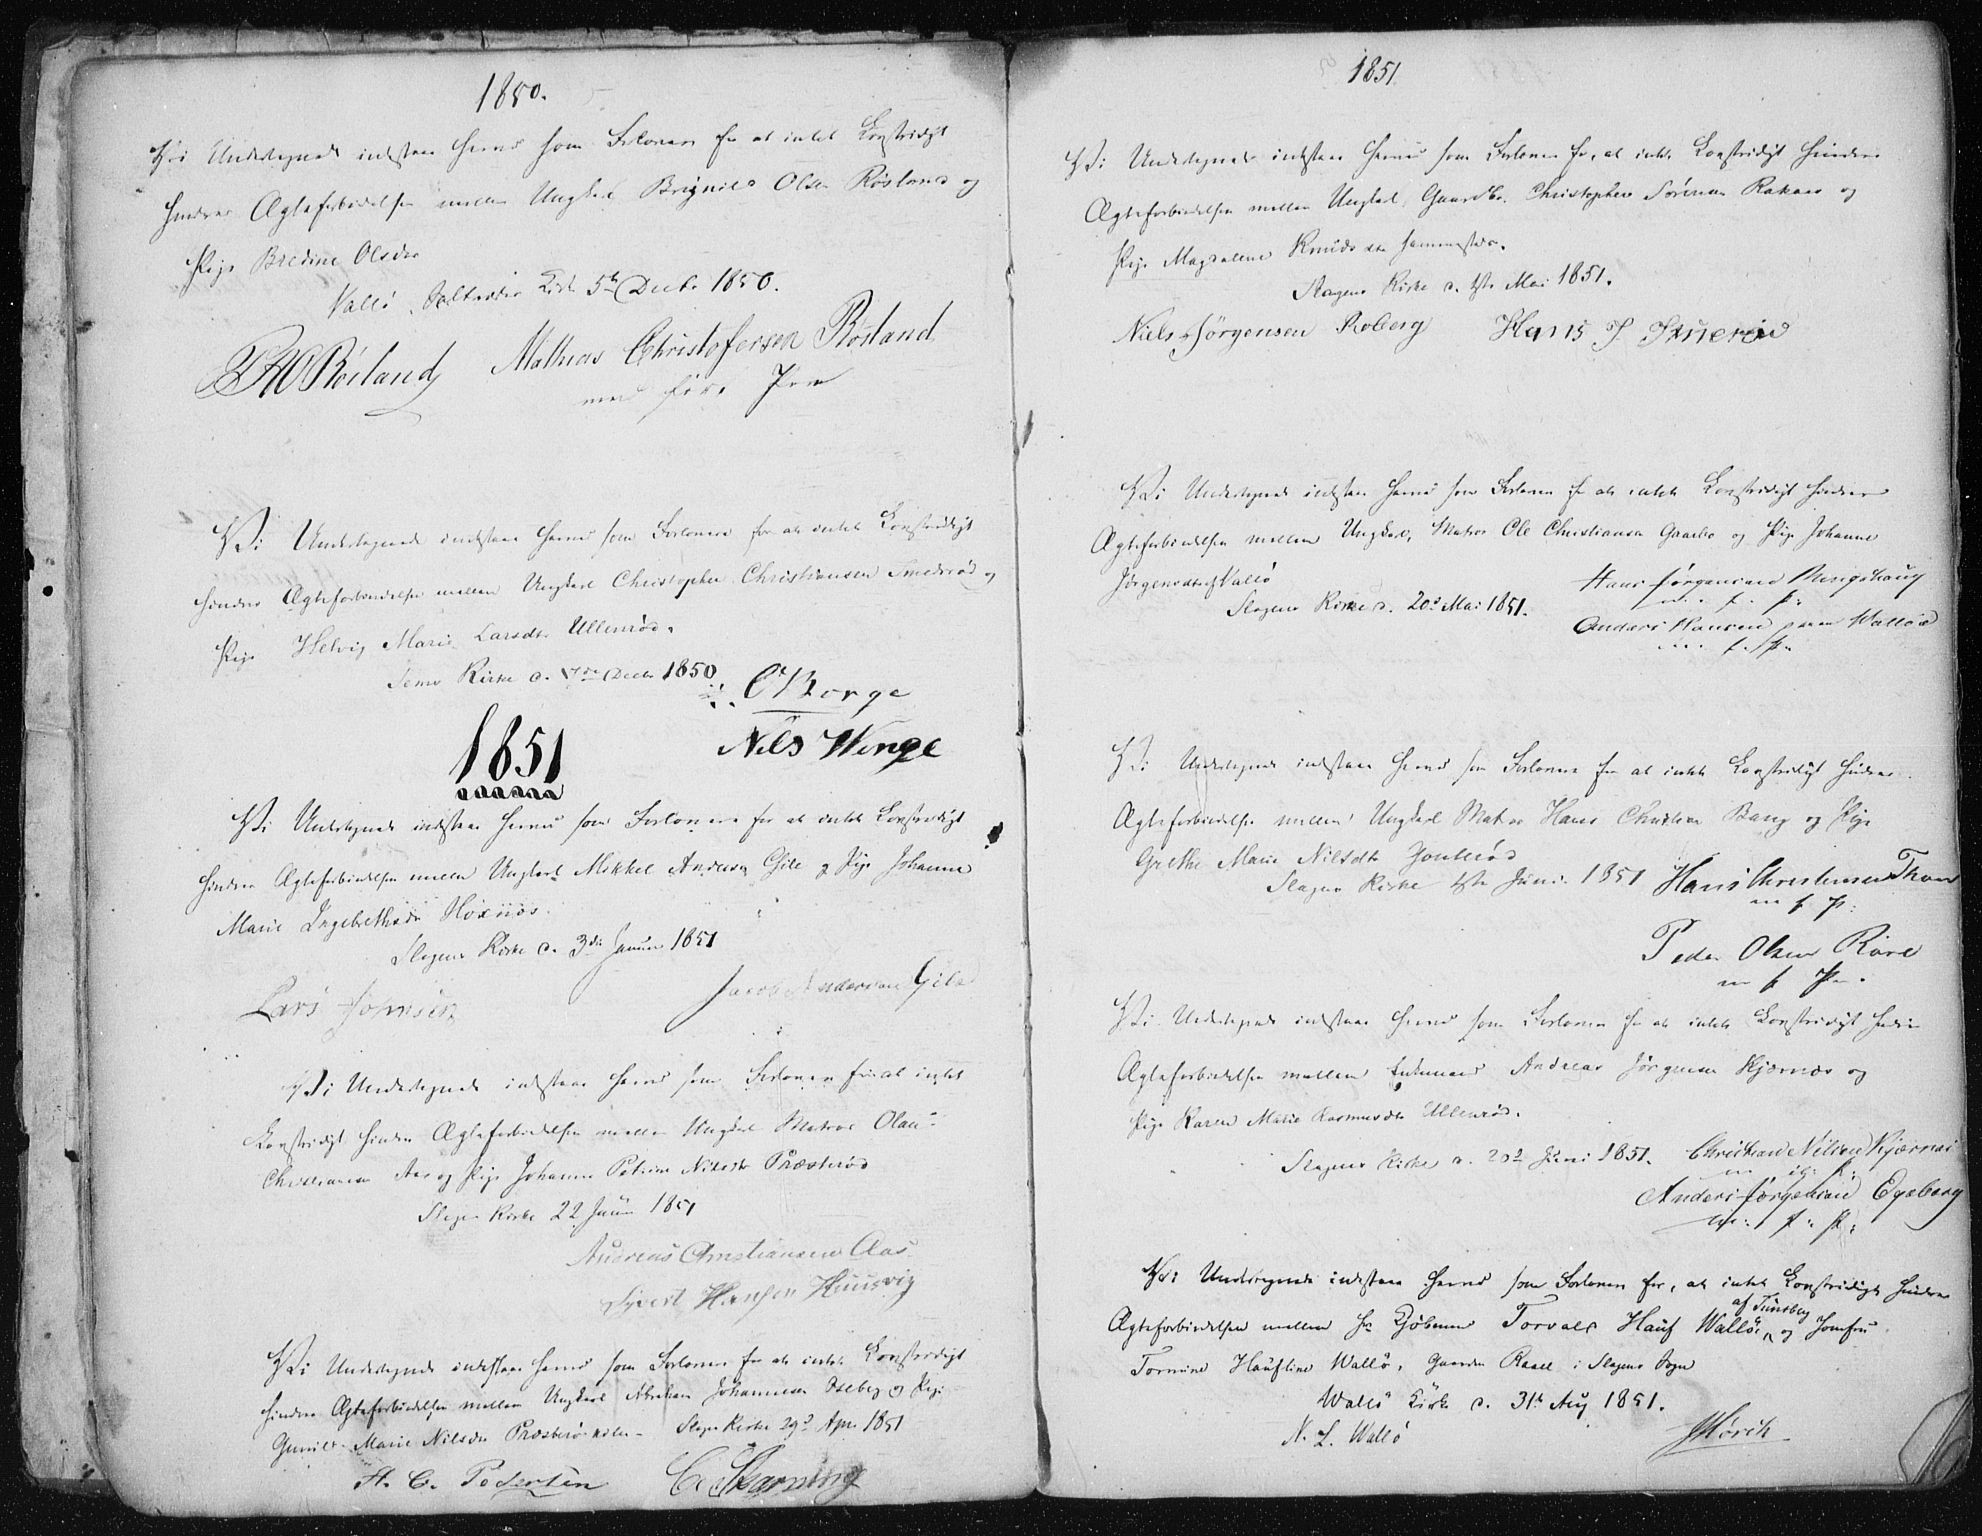 1850.
Vi Undertegnede indestaae herved som Forlovere for at intet Lovstridigt
hindrer Ægteforbindelsen mellem Ungkarl Brynild Olsen Røsland og
Pige Bredine Olsdr
Vallö Saltværks Kirke 5te Decbr 1850.
Røsland Mathias Christofersen Røsland
med ført Pen
Vi Undertegnede indestaae herved som Forlovere for at intet Lovstridigt
hindrer Ægteforbindelsen mellem Ungkarl Christopher Christiansen Smedsrød og
Pige Helvig Marie Larsdtr Ullenrød.
Sems Kirke d. Decbr 1850
O Borge
Nils Winge
1851
Vi Undertegnede indestaae herved som Forlovere for at intet Lovstridigt
hindrer Ægteforbindelsen mellem Ungkarl Mikkel Andersen Gile og Pige Johanne
Marie Ingebrethsdr Hoxnæs.
Slagens Kirke d. 3die Januar 1851
Lars Johnsen Jacob Andersen Gile
Vi Undertegnede indestaae herved som Forlovere for at intet
Lovstridigt hindrer Ægteforbindelsen mellem Ungkarl Matros Olaus
Christiansen Aas og Pige Johanne Petrine Nilsdtr Præsterød
Slagens Kirke 22 Januar 1851
Andreas Christiansen Aas
Syvert Hansen Huusvig
Vi Undertegnede indestaae herved som Forlovere for at intet Lovstridigt
hindrer Ægteforbindelsen mellem Ungkarl Abraham Johannesen Oseberg og Pige
Gunild Marie Nilsdtr Præsterødkilen - Slagens Kirke 29d Apr. 1851
H. C. Pedersen C. Skarning
1851.
Vi Undertegnede indestaae herved som Forlovere for, at intet Lovstridigt hindrer
Ægteforbindelsen mellem Ungkarl, Gaardbr. Christopher Sörensen Rakaas og
Pige Magdalene Knudsdtr sammesteds.
Slagens Kirke d. 1ste Mai 1851.
Niels Jörgensen Roberg Hans J
Vi Undertegnede indestaae herved som Forlovere for at intet Lovstridigt hindrer
Ægteforbindelsen mellem Ungkarl, Matros Ole Christiansen Gaarbo og Pige Johanne
Jörgensdatter Vallö
Slagens Kirke d. 20d Mai 1851.
Hans Jørgensen Ringshaug
m. f. P.
Anders Hansen Wallöe
m. f. P.
Vi Undertegnede indestaae herved som Forlovere for at intet Lovstridigt hindrer
Ægteforbindelsen mellem Ungkarl Matros Hans Christian Bang og Pige
Grethe Marie Nilsdtr
Slagens Kirke 1ste Juni 1851 Hans Christensen
m f P.
Peder Olsen Rore
m f P.
Vi Undertegnede indestaae herved som Forlovere for at intet Lovstridigt hindrer
Ægteforbindelsen mellem Enkemand Andreas Jörgensen Kjærnæs og
Pige Karen Marie Rasmusdtr Ullenrød.
Slagens Kirke d. 20d Juni 1851.
Christian Nilsen Kjærnæs
m. f. P.
Anders Jørgensen Egeberg
m. f. P.
Vi Undertegnede indestaae herved som Forlovere for, at intet Lovstridigt hindrer
Ægteforbindelsen mellem Hr Kjöbmand Torvald Hauf Wallöe af Tunsberg og Jomfru
Tomine Haufline Wallö, Gaarden Raael i Slagens Sogn
Wallö Kirke d. 31te Aug 1851.
N. L. Wallö